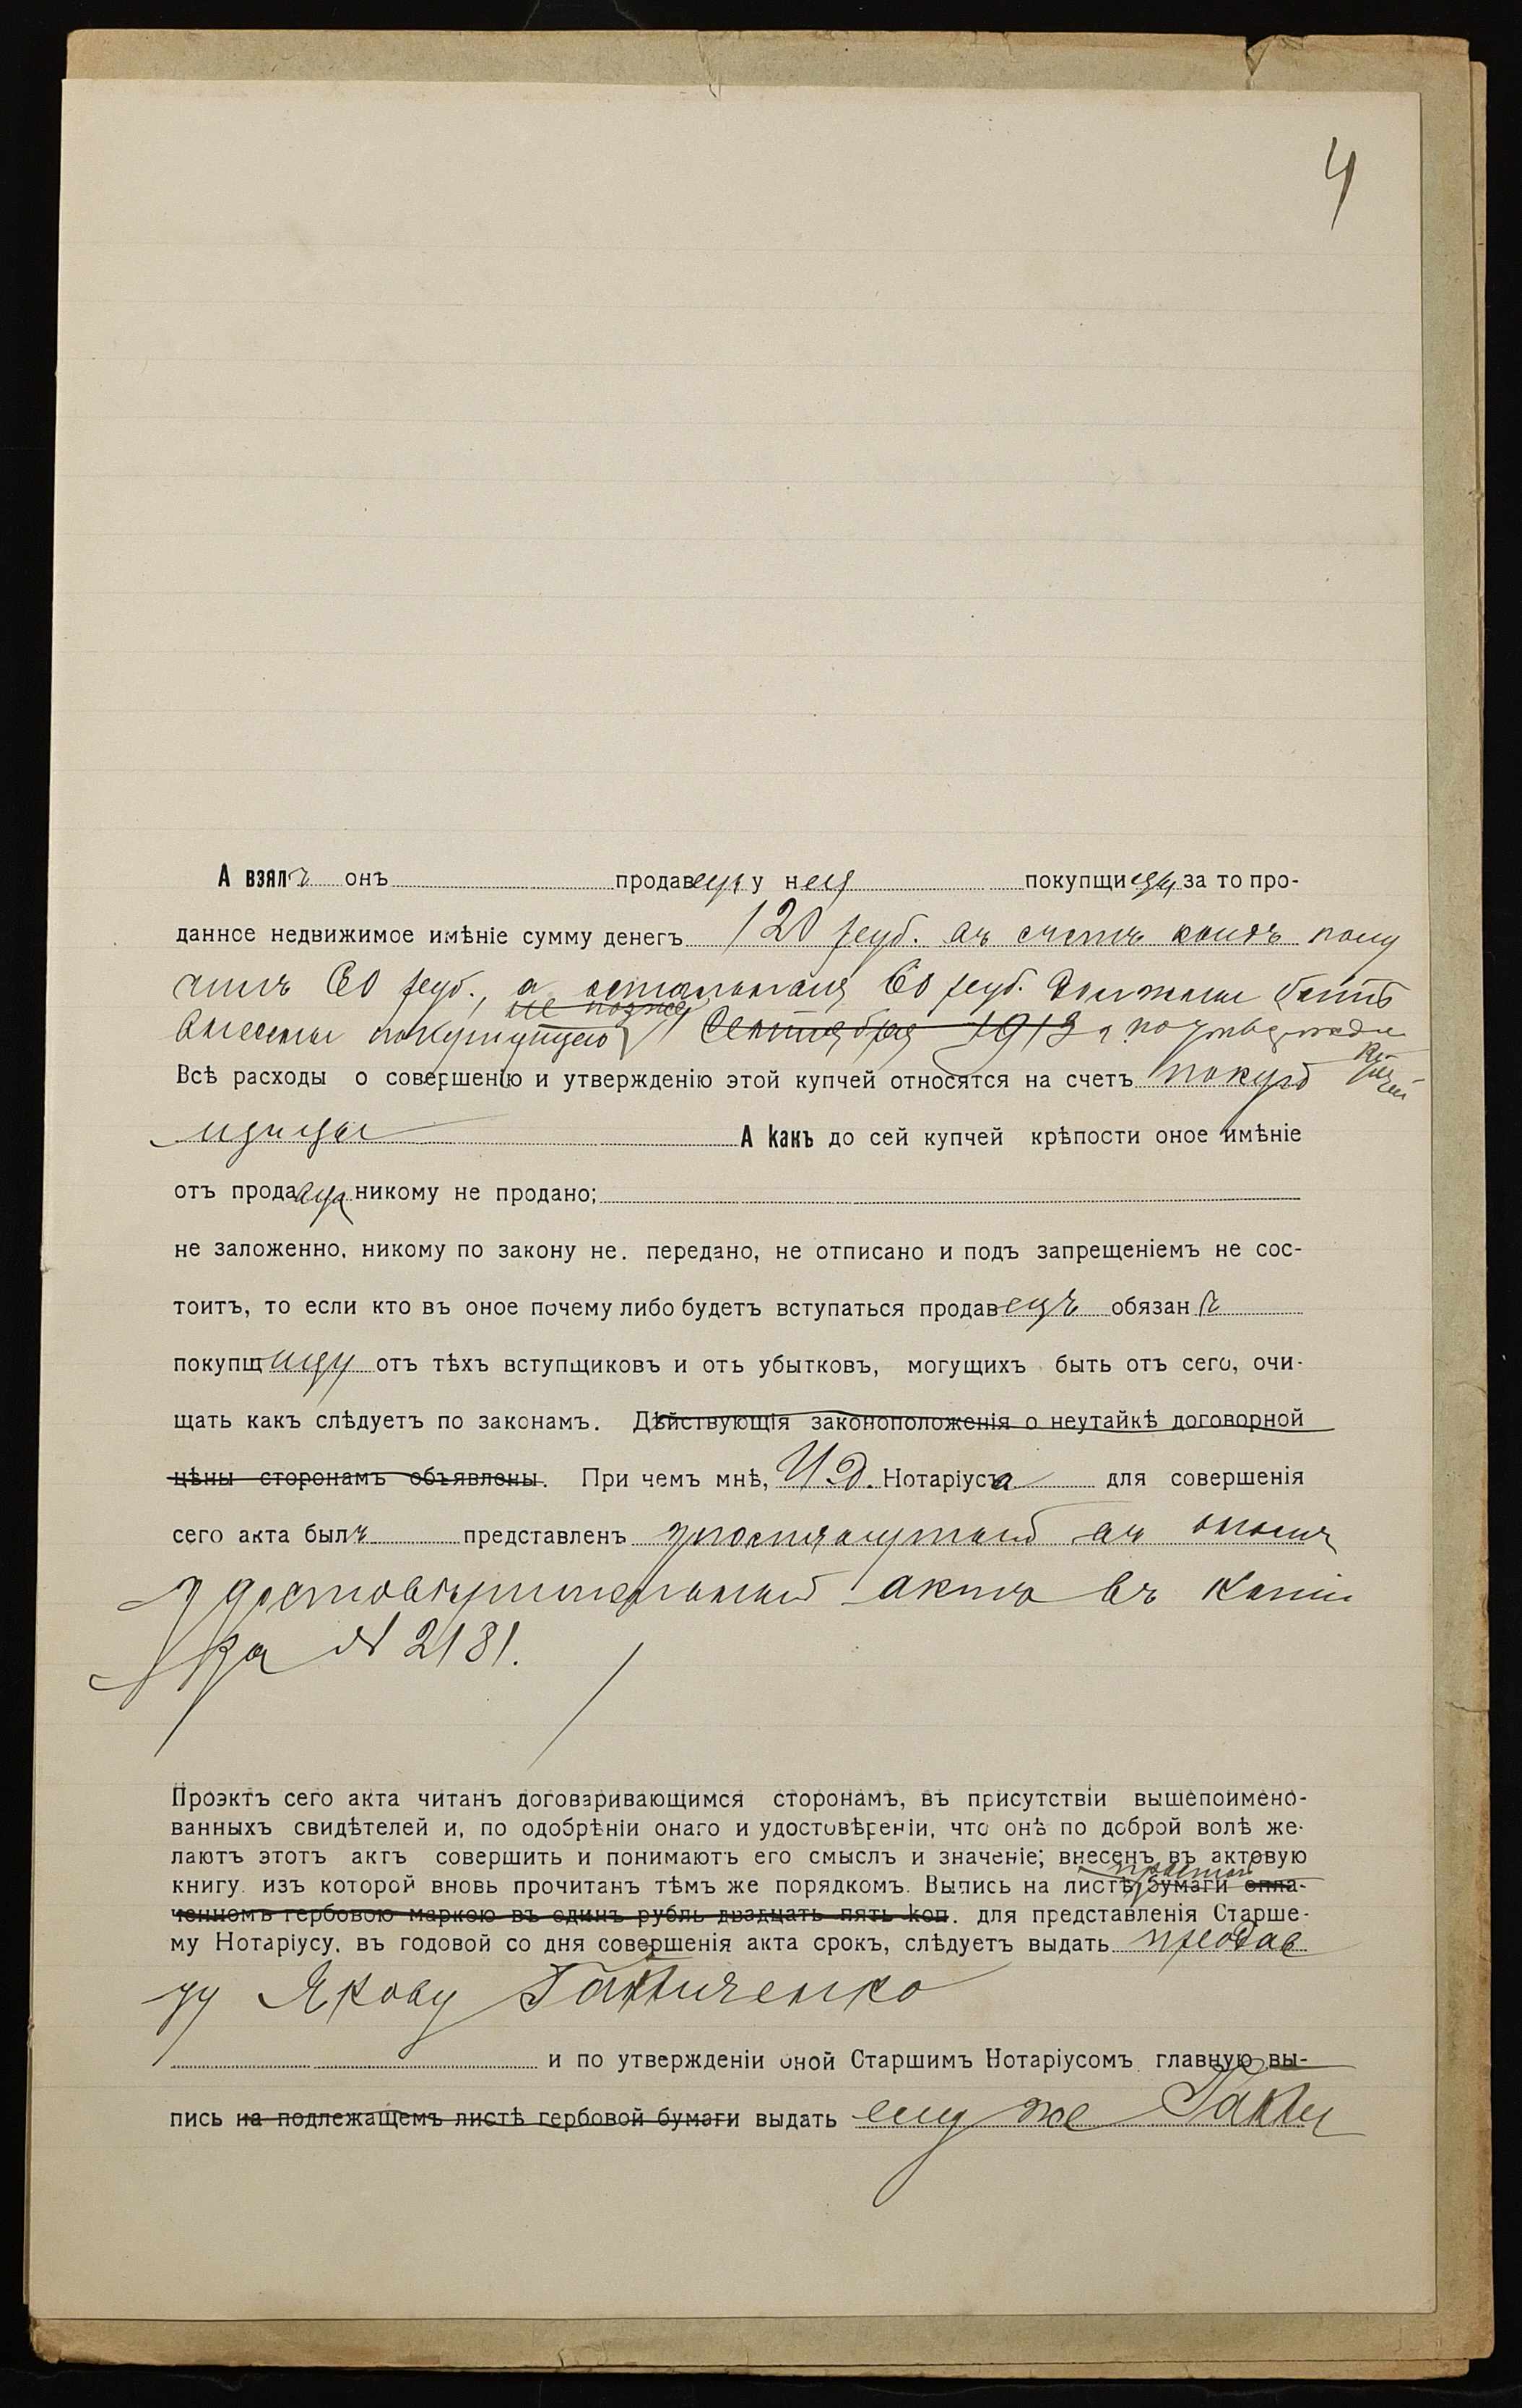 4
А взялъ онъ продавецъ у нея покупщицы за то про-
данное недвижимое имѣніе сумму денегъ 120 руб. въ счетъ коихъ полу
чилъ 60 руб., а остальныя 60 руб. должны быть
не позже
внесены покупщицею Сентября 1913 г. по утвержде
Всѣ расходы о совершенію и утвержденію этой купчей относятся на счетъ покуп
щицы А какъ до сей купчей крѣпости оное имѣніе
отъ продавца никому не продано;
не заложенно, никому по закону не. передано, не отписано и подъ запрещеніемъ не сос-
тоитъ, то если кто въ оное почему либо будетъ вступаться продавецъ обязанъ
покупщицу отъ тѣхъ вступщиковъ и отъ убытковъ, могущихъ быть отъ сего, очи-
щать какъ слѣдуетъ по законамъ. Дѣйствующія законоположенія о неутайкѣ договорной
цѣны сторонамъ объявлены. При чемъ мнѣ, И. Д. Нотаріуса для совершенія
сего акта былъ представленъ
удостовѣрительный актъ въ копіи
за № 2181.
Проэктъ сего акта читанъ договаривающимся сторонамъ, въ присутствіи вышепоимено-
ванныхъ свидѣтелей и, по одобрѣніи онаго и удостовѣреніи, что онѣ по доброй волѣ же-
лаютъ этотъ актъ совершить и понимаютъ его смыслъ и значеніе; внесенъ въ актовую
простой
книгу. изъ которой вновь прочитанъ тѣмъ же порядкомъ. Выпись на листѣ бумаги опла-
ченномъ гербовою маркою въ одинъ рубль двадцать пять коп. для представленія Старше-
му Нотаріусу, въ годовой со дня совершенія акта срокъ, слѣдуетъ выдать продав
цу Якову
и по утвержденіи оной Старшимъ Нотаріусомъ главную вы-
пись на подлежащемъ листѣ гербовой бумаги выдать ему же